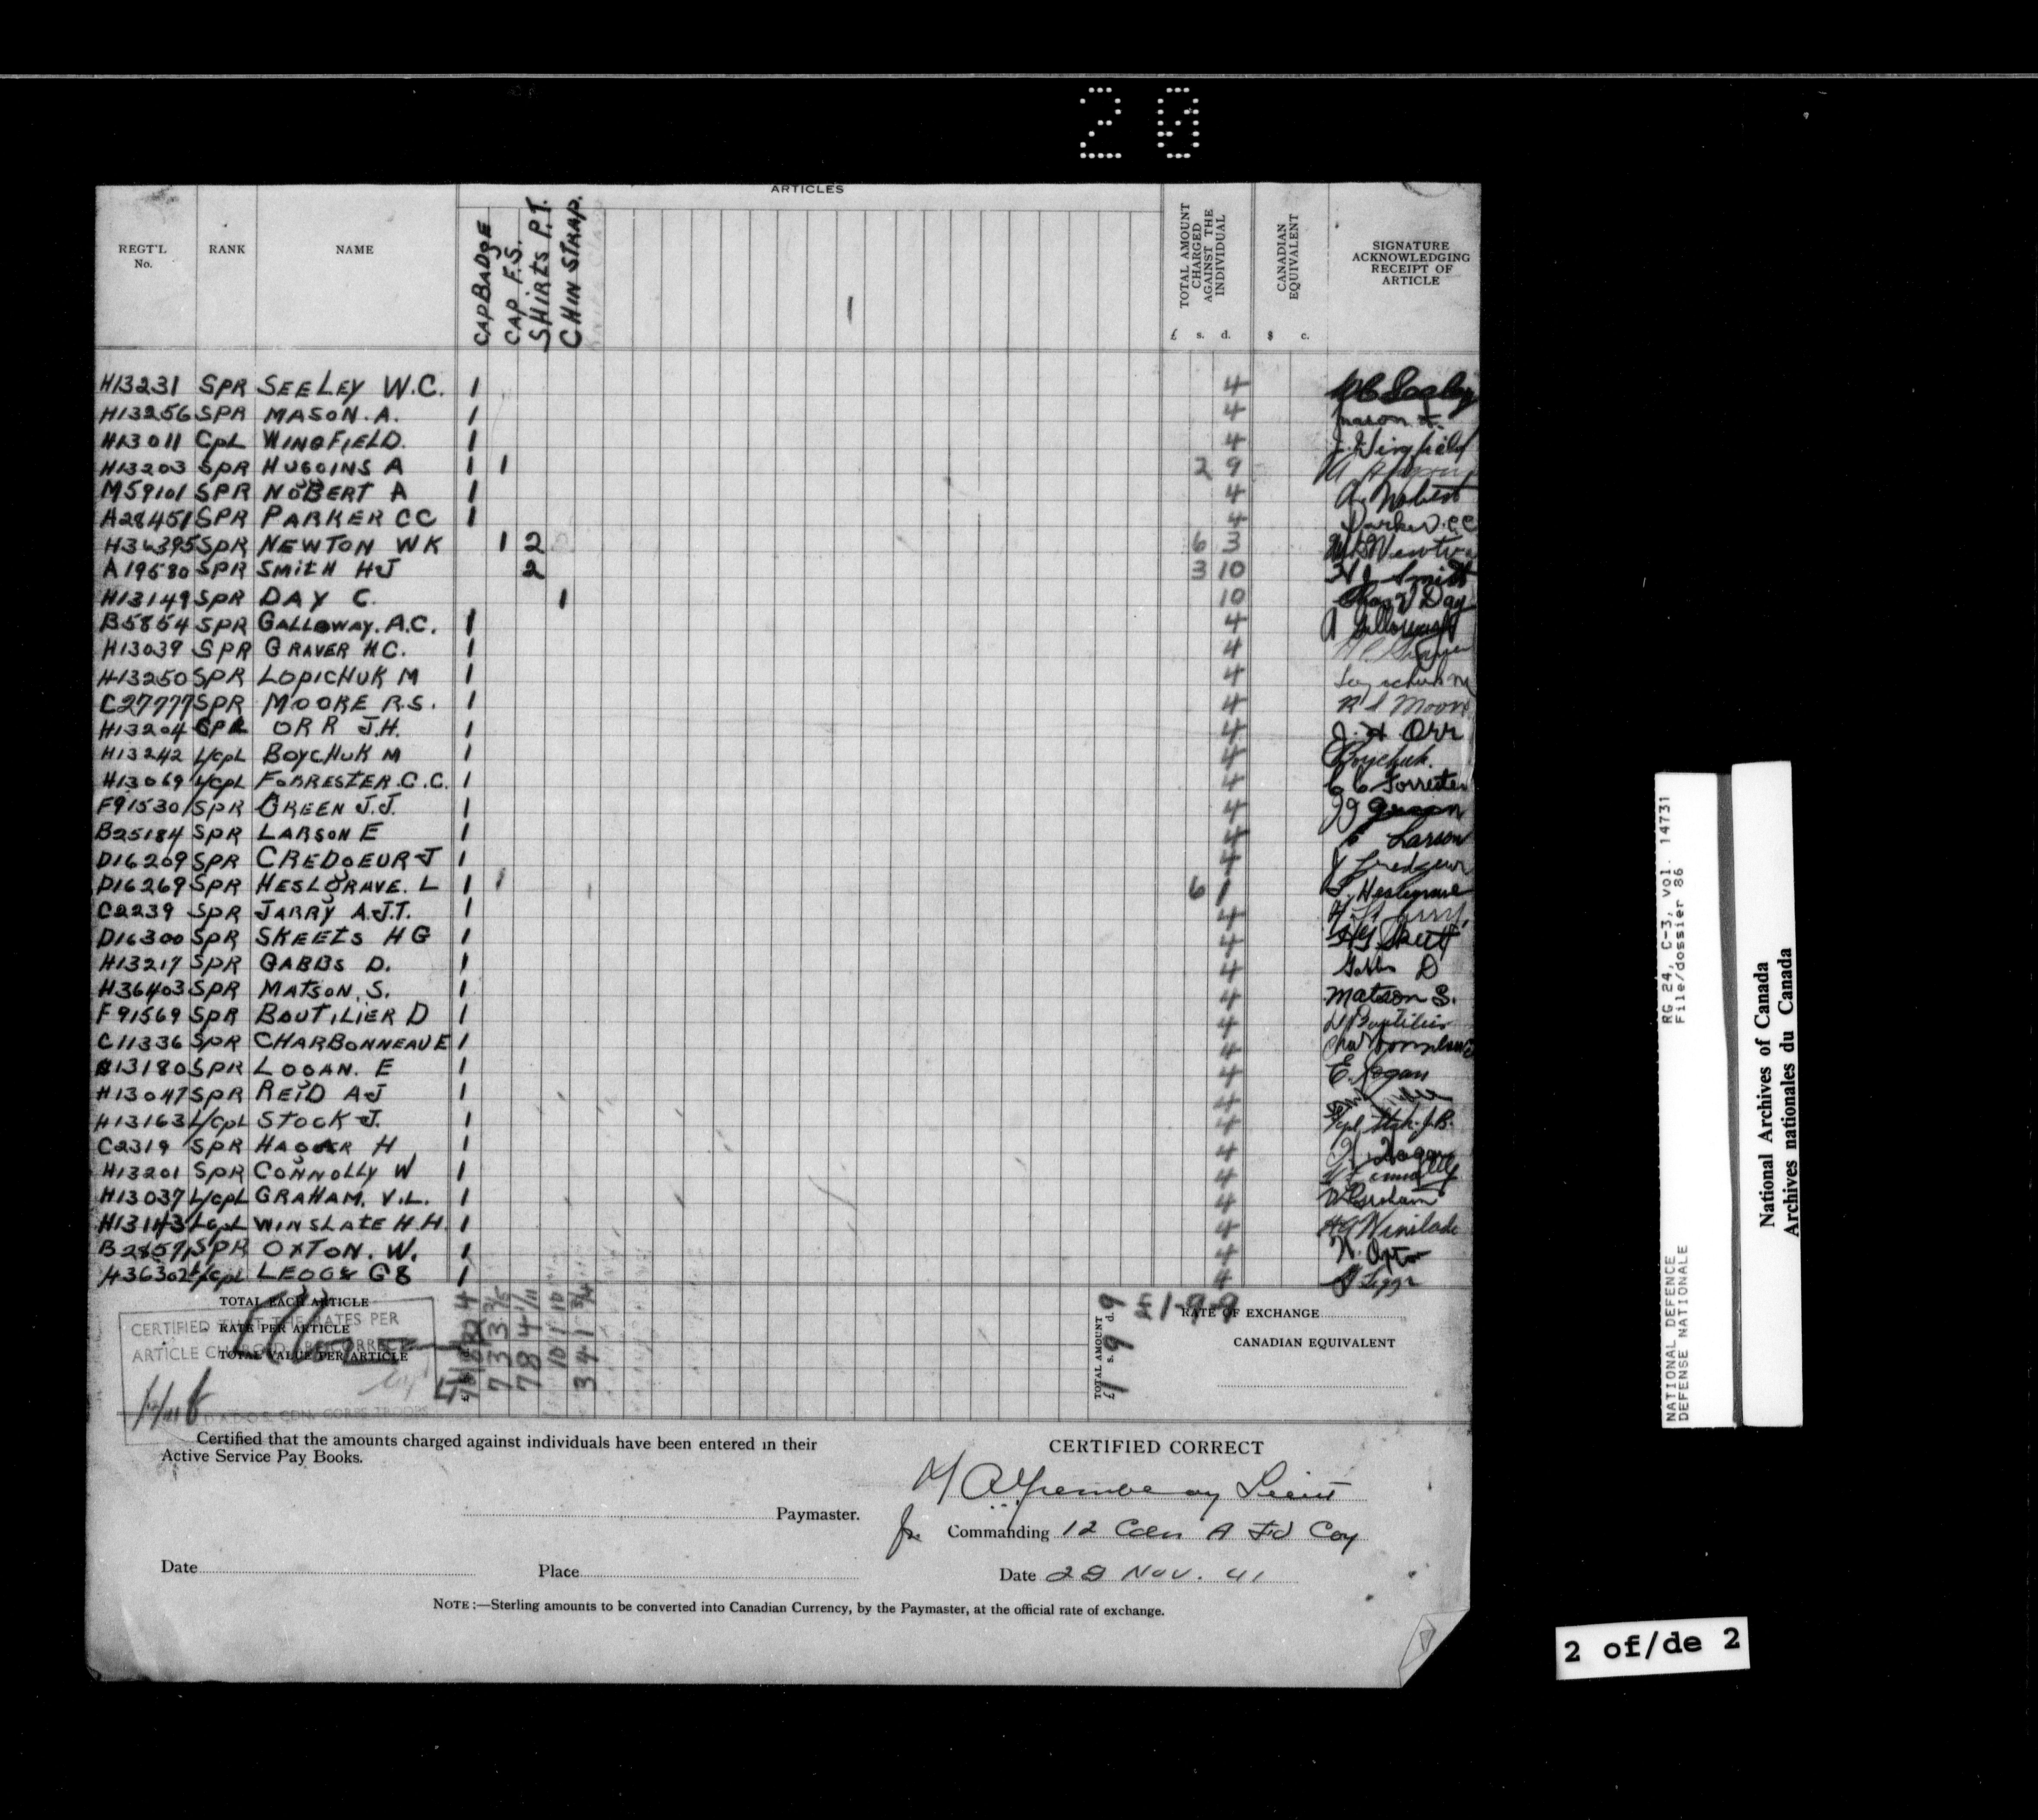 20
ARTICLES
REGT'L No.
RANK
NAME
CAP BADGE
CAP F.S.
SHIRTS P.T.
CHIN STRAP.
TOTAL AMOUNT CHARGED AGAINST THE INDIVIDUAL
£ s. d.
CANADIAN EQUIVALENT
$ c.
SIGNATURE ACKNOWLEDGING RECEIPT OF ARTICLE
H13231 SPR SEELEY W.C. 1 4 WC Seeley
H13256 SPR MASON. A. 1 4 Mason A.
H13011 CPL WINGFIELD. 1 4 J. Wingfield
H13203 SPR HUGGINS A 1 1 2 9
M59101 SPR NOBERT A 1 4 A. Nobert
A28451 SPR PARKER CC 1 4 Parker. CC
H36395 SPR NEWTON WK 1 2 6 3 WK Newton
A19680 SPR SMITH HJ 2 3 10 HJ Smith
H13149 SPR DAY C. 1 10 Chas V Day
B5854 SPR GALLOWAY. A.C. 1 4 A Galloway
H13039 SPR GRAVER HC. 1 4
H13250 SPR LOPICHUK M 1 4 Lopichuk M
C27777 SPR MOORE R.S. 1 4 R S Moore
H13204 SPR ORR J.H. 1 4 J. H Orr
H13242 L/CPL BOYCHUK M 1 4 Boychuk.
H13069 L/CPL FORRESTER. C.C. 1 4 C C Forrester
F91530 SPR GREEN J.J. 1 4 JJ Green
B25184 SPR LARSON E 1 4 E Larson
D16209 SPR CREDGEUR J 1 4 J Credgeur
D16269 SPR HESLGRAVE. L 1 1 1 6 1 L. Heslgrave
C2239 SPR JARRY A.J.T. 1 4
D16300 SPR SKEETS HG 1 4 HG Skeet
H13217 SPR GABBS D. 1 4 Gabbs D
H36403 SPR MATSON. S. 1 4 Matson S.
F91569 SPR BOUTILIER D 1 4 D Boutilier
C11336 SPR CHARBONNEAU E 1 4 Charbonneau E
H13180 SPR LOGAN. E 1 4 E. Logan
H13047 SPR REID AJ 1 4
H13163 L/CPL STOCK J. 1 4 L/Cpl Stock. J.B.
C2319 SPR HAGAR H 1 4 H. Hagar
H13201 SPR CONNOLLY W 1 4 W Connolly
H13037 L/CPL GRAHAM. V.L. 1 4 VL Graham
H13143 L/CPL WINSLATE H.H. 1 4 Winslade
B28571 SPR OXTON. W. 1 4 W. Oxton
H36302 L/CPL LEGGE G8 1 4
TOTAL EACH ARTICLE
RATE PER ARTICLE
TOTAL VALUE PER ARTICLE
CERTIFIED THAT THE RATES PER
ARTICLE CHARGED ARE CORRECT
D.A.D.O.S. CDN. CORPS TROOPS
TOTAL AMOUNT
£ s. d.
1 9 9
£1-9-9
RATE OF EXCHANGE
CANADIAN EQUIVALENT
Certified that the amounts charged against individuals have been entered in their
Active Service Pay Books.
CERTIFIED CORRECT
Lieut
Paymaster.
for Commanding 12 Cdn A Fd Coy
Date
Place
Date 28 Nov. 41
NOTE:—Sterling amounts to be converted into Canadian Currency, by the Paymaster, at the official rate of exchange.
NATIONAL DEFENCE RG 24, C-3, vol. 14731
DEFENSE NATIONALE File/dossier 86
National Archives of Canada
Archives nationales du Canada
2 of/de 2